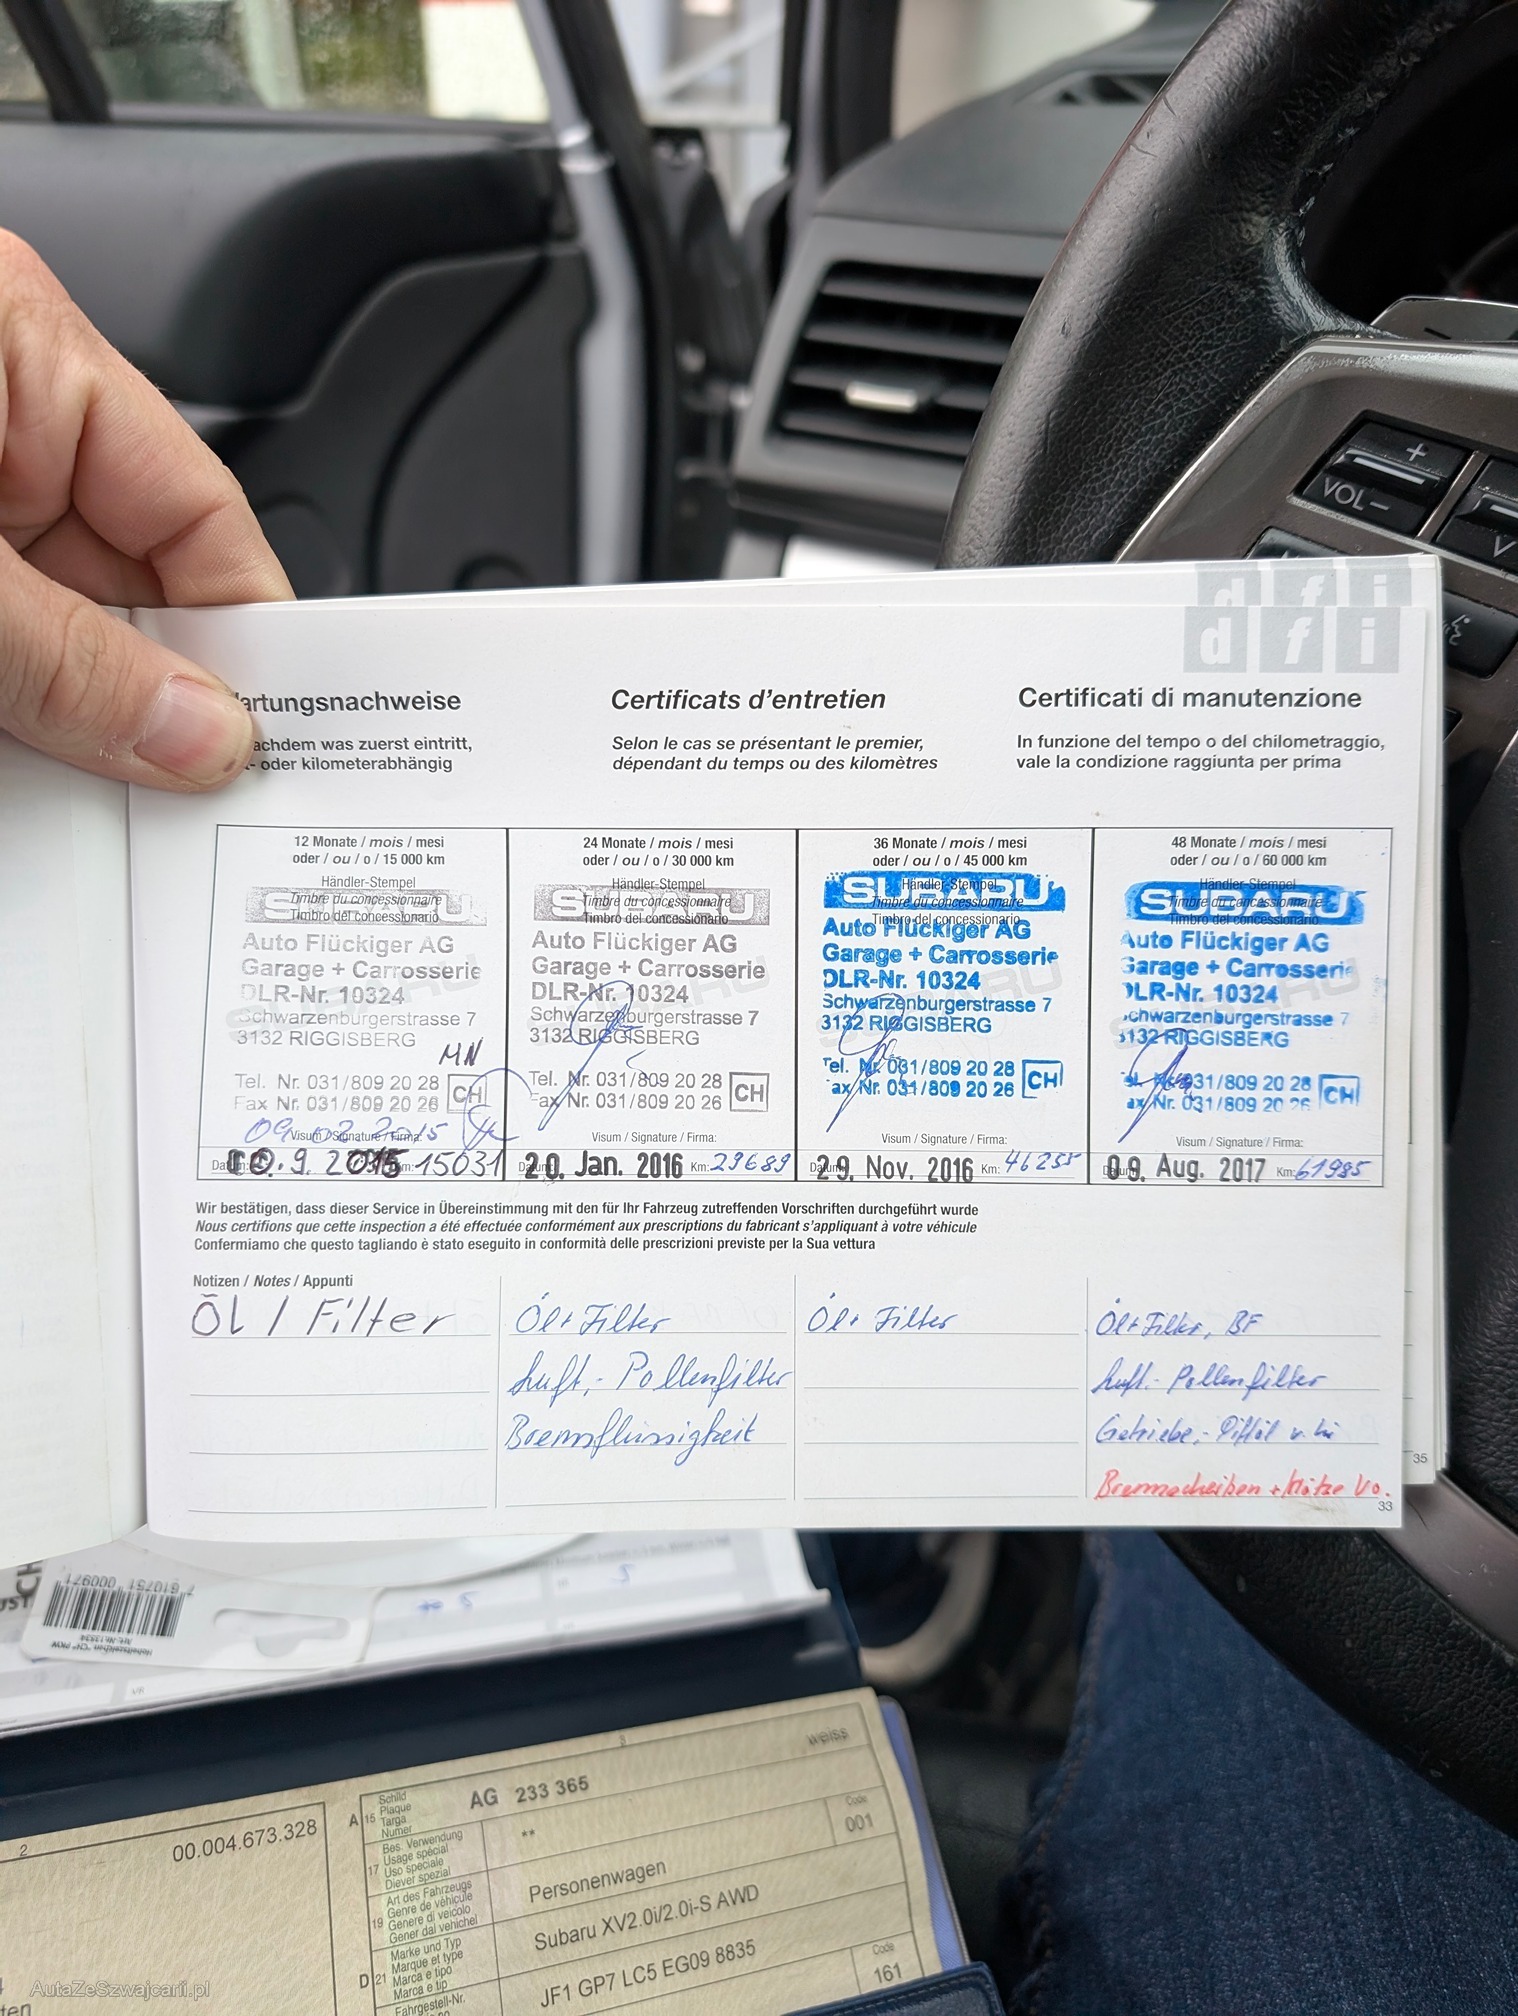 VOL
+
-
d f i
d f i
artungsnachweise
achdem was zuerst eintritt,
- oder kilometerabhängig
Certificats d'entretien
Selon le cas se présentant le premier,
dépendant du temps ou des kilomètres
Certificati di manutenzione
In funzione del tempo o del chilometraggio,
vale la condizione raggiunta per prima
12 Monate / mois / mesi
oder / ou / o / 15 000 km
Händler-Stempel
Timbre du concessionnaire
Timbro del concessionario
Auto Flückiger AG
Garage + Carrosserie
DLR-Nr. 10324
Schwarzenburgerstrasse 7
3132 RIGGISBERG
MN
Tel. Nr. 031/809 20 28
Fax Nr. 031/809 20 26
CH
Visum / Signature / Firma:
15031
24 Monate / mois / mesi
oder / ou / o / 30 000 km
Händler-Stempel
Timbre du concessionnaire
Timbro del concessionario
SUBARU
Auto Flückiger AG
Garage + Carrosserie
DLR-Nr. 10324
Schwarzenburgerstrasse 7
3132 RIGGISBERG
Tel. Nr. 031/809 20 28
Fax Nr. 031/809 20 26
CH
Visum / Signature / Firma:
20. Jan. 2016 Km: 29689
36 Monate / mois / mesi
oder / ou / o / 45 000 km
Händler-Stempel
Timbre du concessionnaire
Timbro del concessionario
SUBARU
Auto Flückiger AG
Garage + Carrosserie
DLR-Nr. 10324
Schwarzenburgerstrasse 7
3132 RIGGISBERG
Tel. Nr. 031/809 20 28
ax Nr. 031/809 20 26
CH
Visum / Signature / Firma:
29. Nov. 2016 Km: 46255
48 Monate / mois / mesi
oder / ou / o / 60 000 km
Händler-Stempel
Timbre du concessionnaire
Timbro del concessionario
SUBARU
Auto Flückiger AG
Garage + Carrosserie
DLR-Nr. 10324
chwarzenburgerstrasse 7
3132 RIGGISBERG
031/809 20 28
ax Nr. 031/809 20 26
CH
Visum / Signature / Firma:
09. Aug. 2017 Km: 61985
Wir bestätigen, dass dieser Service in Übereinstimmung mit den für Ihr Fahrzeug zutreffenden Vorschriften durchgeführt wurde
Nous certifions que cette inspection a été effectuée conformément aux prescriptions du fabricant s'appliquant à votre véhicule
Confermiamo che questo tagliando è stato eseguito in conformità delle prescrizioni previste per la Sua vettura
Notizen / Notes / Appunti
Öl / Filter
Öl + Filter
Luft,- Pollenfilter
Bremsflüssigkeit
Öl + Filter
Öl + Filter, BF
Luft.- Pollenfilter
Getriebe,- Difföl v. hi
Bremsscheiben + Klötze Vo.
35
33
7 610751 000971
2
00.004.673.328
3
weiss
A 15
Schild
Plaque
Targa
Numer
AG 233 365
17
Bes. Verwendung
Usage spécial
Uso speciale
Diever spezial
**
Code
001
19
Art des Fahrzeugs
Genre de véhicule
Genere di veicolo
Gener dal vehichel
Personenwagen
D 21
Marke und Typ
Marque et type
Marca e tipo
Marca e tip
Subaru XV2.0i/2.0i-S AWD
Fahrgestell-Nr.
JF1 GP7 LC5 EG09 8835
Code
161
AutaZeSzwajcarii.pl